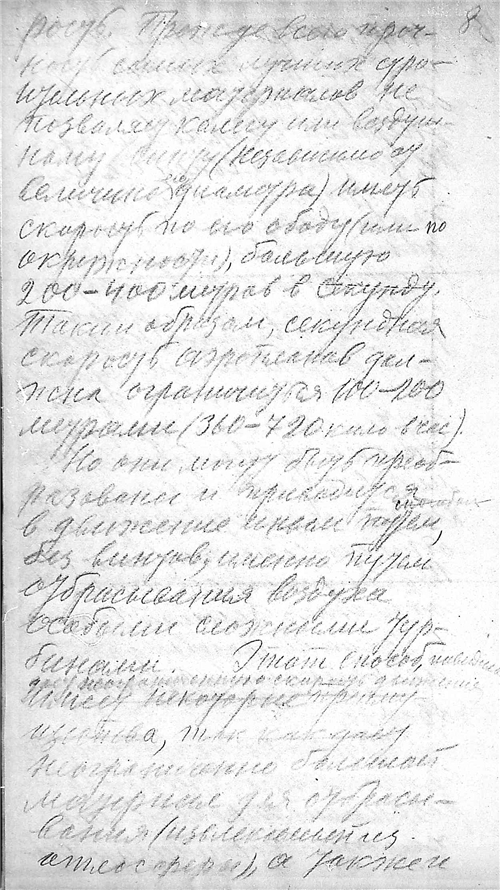 8
рость. Прежде всего проч-
ность самых лучших стро-
ительных материалов не
позволяет колесу или воздуш-
ному винту (независимо от
величины его диаметра) иметь
скорость по его ободу (или по
окружности), большую
200–400 метров в секунду.
Таким образом, секундная
скорость аэропланов дол-
жна ограничиться 100–200
метрами (360–720 кило в час).
Но они могут быть преоб-
разованы и приводиться
в движение иным путем,
без винтов, именно путем
отбрасывания воздуха
особыми сложными тур-
бинами. Этот способ
имеет некоторые преиму-
щества, так как дает
неограниченно большой
материал для отбрасы-
вания (извлекаемый из
атмосферы), а также и